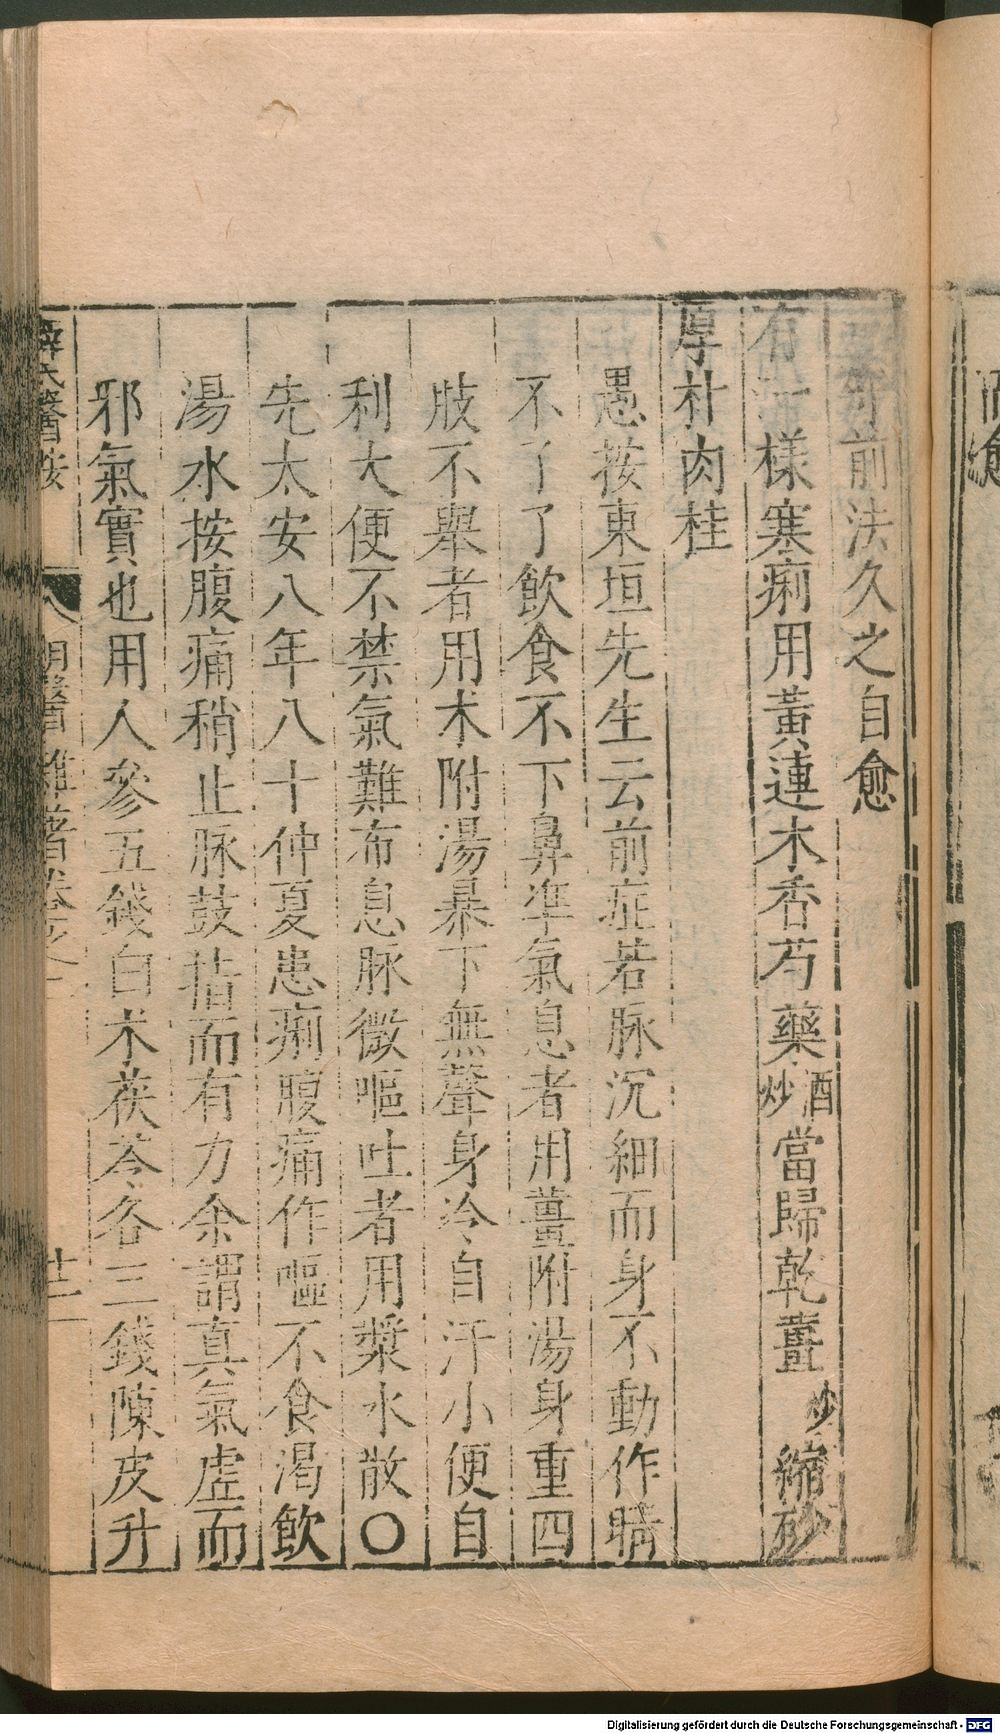 前法久之自愈
有一樣寒痢用黃連木香芍藥酒炒當歸乾薑炒縮砂
厚朴肉桂
愚按東垣先生云前症若脉沉細而身不動作睛
不了了飲食不下鼻準氣息者用薑附湯身重四
肢不舉者用术附湯暴下無聲身冷自汗小便自
利大便不禁氣難布息脉微嘔吐者用漿水散〇
先太安八年八十仲夏患痢腹痛作嘔不食渴飲
湯水按腹痛稍止脉鼓指而有力余謂真氣虚而
邪氣實也用人參五錢白术茯苓各三錢陳皮升
薛氏醫按 明醫雜著卷之二 廿二
而愈
Digitalisierung gefördert durch die Deutsche Forschungsgemeinschaft - DFG